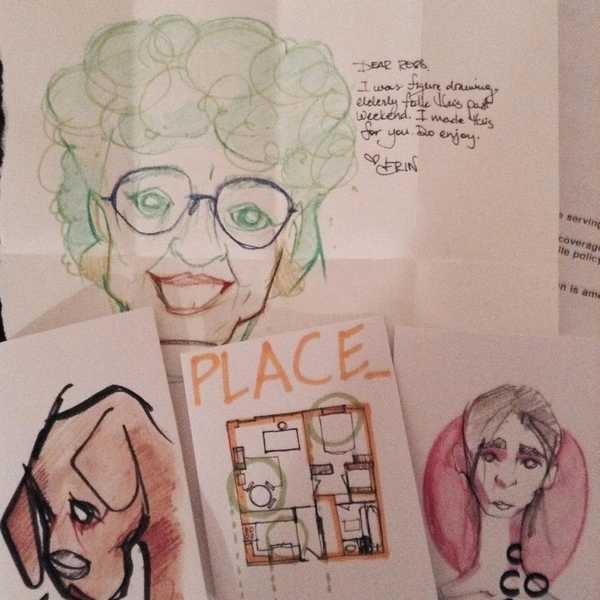 DEAR ROSS,
I was figure drawing,
elderly folk this past
weekend. I made this
for you. Do enjoy.
♡ ERIN
serving
coverage
policy
n is ame
PLACE_
C
CO